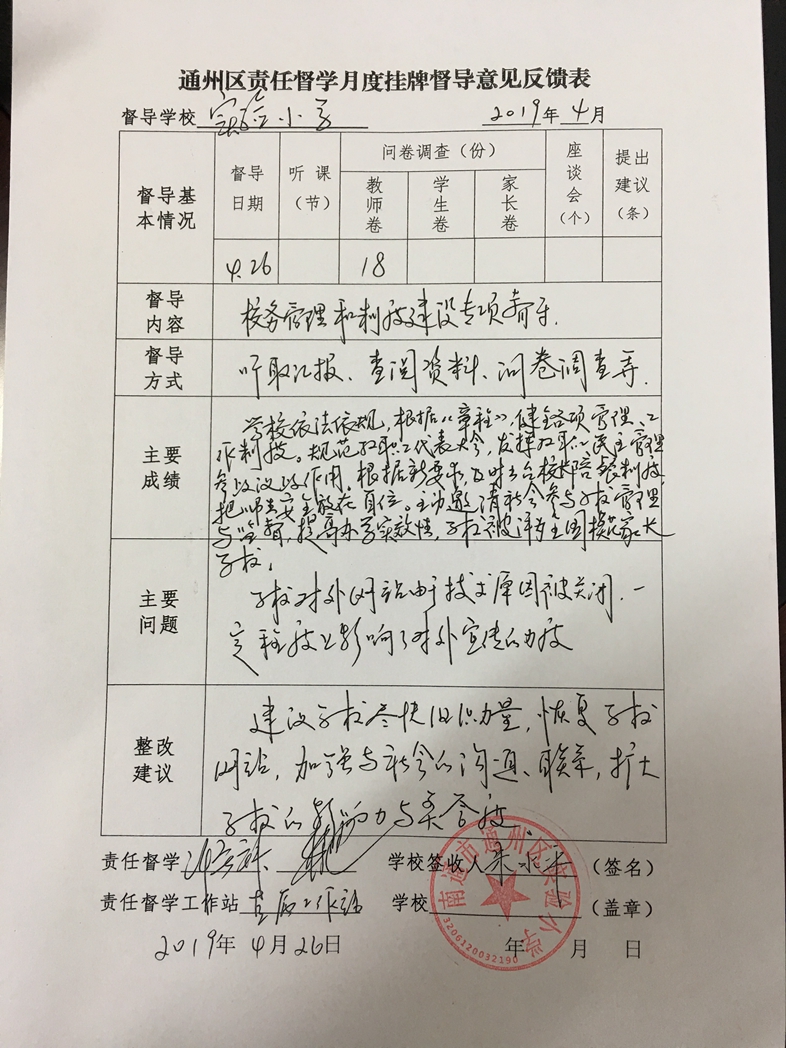 通州区责任督学月度挂牌督导意见反馈表
督导学校 实验小学 2019年 4月
督导基本情况
督导日期
听课（节）
问卷调查（份）
教师卷
学生卷
家长卷
座谈会（个）
提出建议（条）
4.26
18
督导内容
校务管理和制度建设专项督导.
督导方式
听取汇报、查阅资料、问卷调查等.
主要成绩
学校依法依规，根据《章程》，健全各项管理、工
作制度。规范教职工代表大会，发挥教职工民主管理
参政议政作用。根据新要求，及时出台校外陪餐制度，
把师生安全放在首位。主动邀请社会参与学校管理
与监督，提高办学实效性，学校被评为全国模范家长
学校；
主要问题
学校对外网站由于技术原因被关闭，一
定程度上影响了对外宣传的力度
整改建议
建议学校尽快组织力量，恢复学校
网站，加强与社会的沟通、联系，扩大
学校的影响力与美誉度
责任督学
学校签收人 （签名）
责任督学工作站 工作站
学校 （盖章）
2019年 4月26日
年 月 日
南通市通州区实验小学
3206120032190